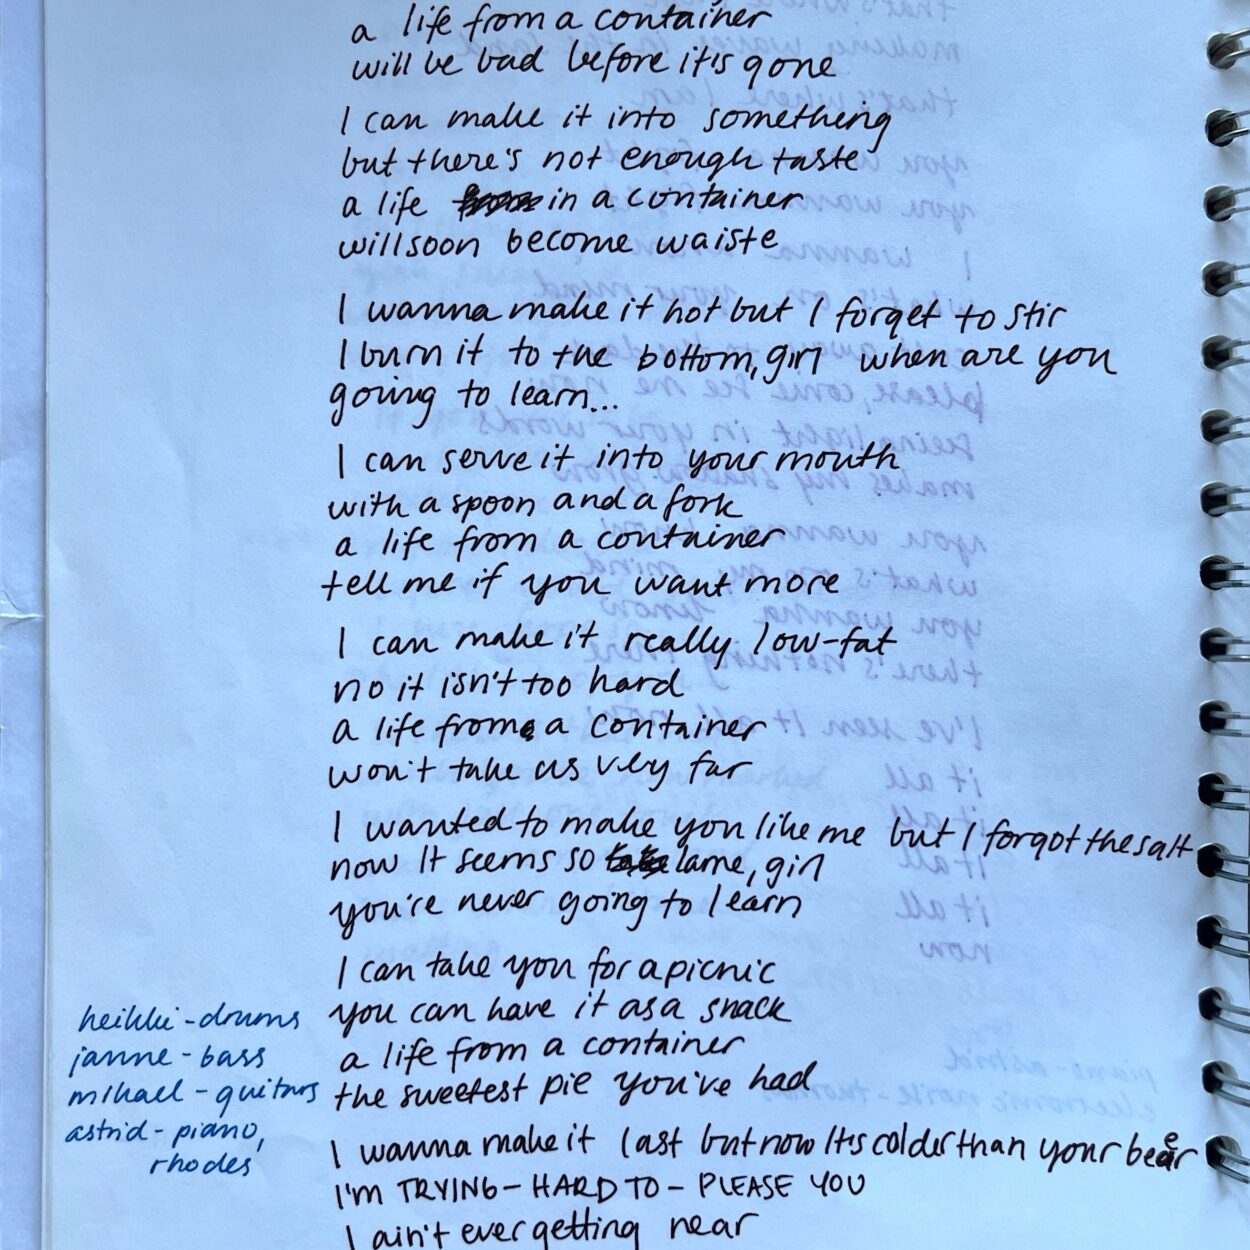 a life from a container
will be bad before it's gone
I can make it into something
but there's not enough taste
a life in a container
will soon become waiste
I wanna make it hot but I forget to stir
I burn it to the bottom, girl when are you
going to learn...
I can serve it into your mouth
with a spoon and a fork
a life from a container
tell me if you want more
I can make it really low-fat
no it isn't too hard
a life from a container
won't take us very far
I wanted to make you like me but I forgot the salt
now it seems so lame, girl
you're never going to learn
I can take you for a picnic
you can have it as a snack
a life from a container
the sweetest pie you've had
I wanna make it last but now it's colder than your beer
I'm TRYING - HARD TO - PLEASE YOU
I ain't ever getting near
heikki - drums
janne - bass
mikael - guitars
astrid - piano,
rhodes